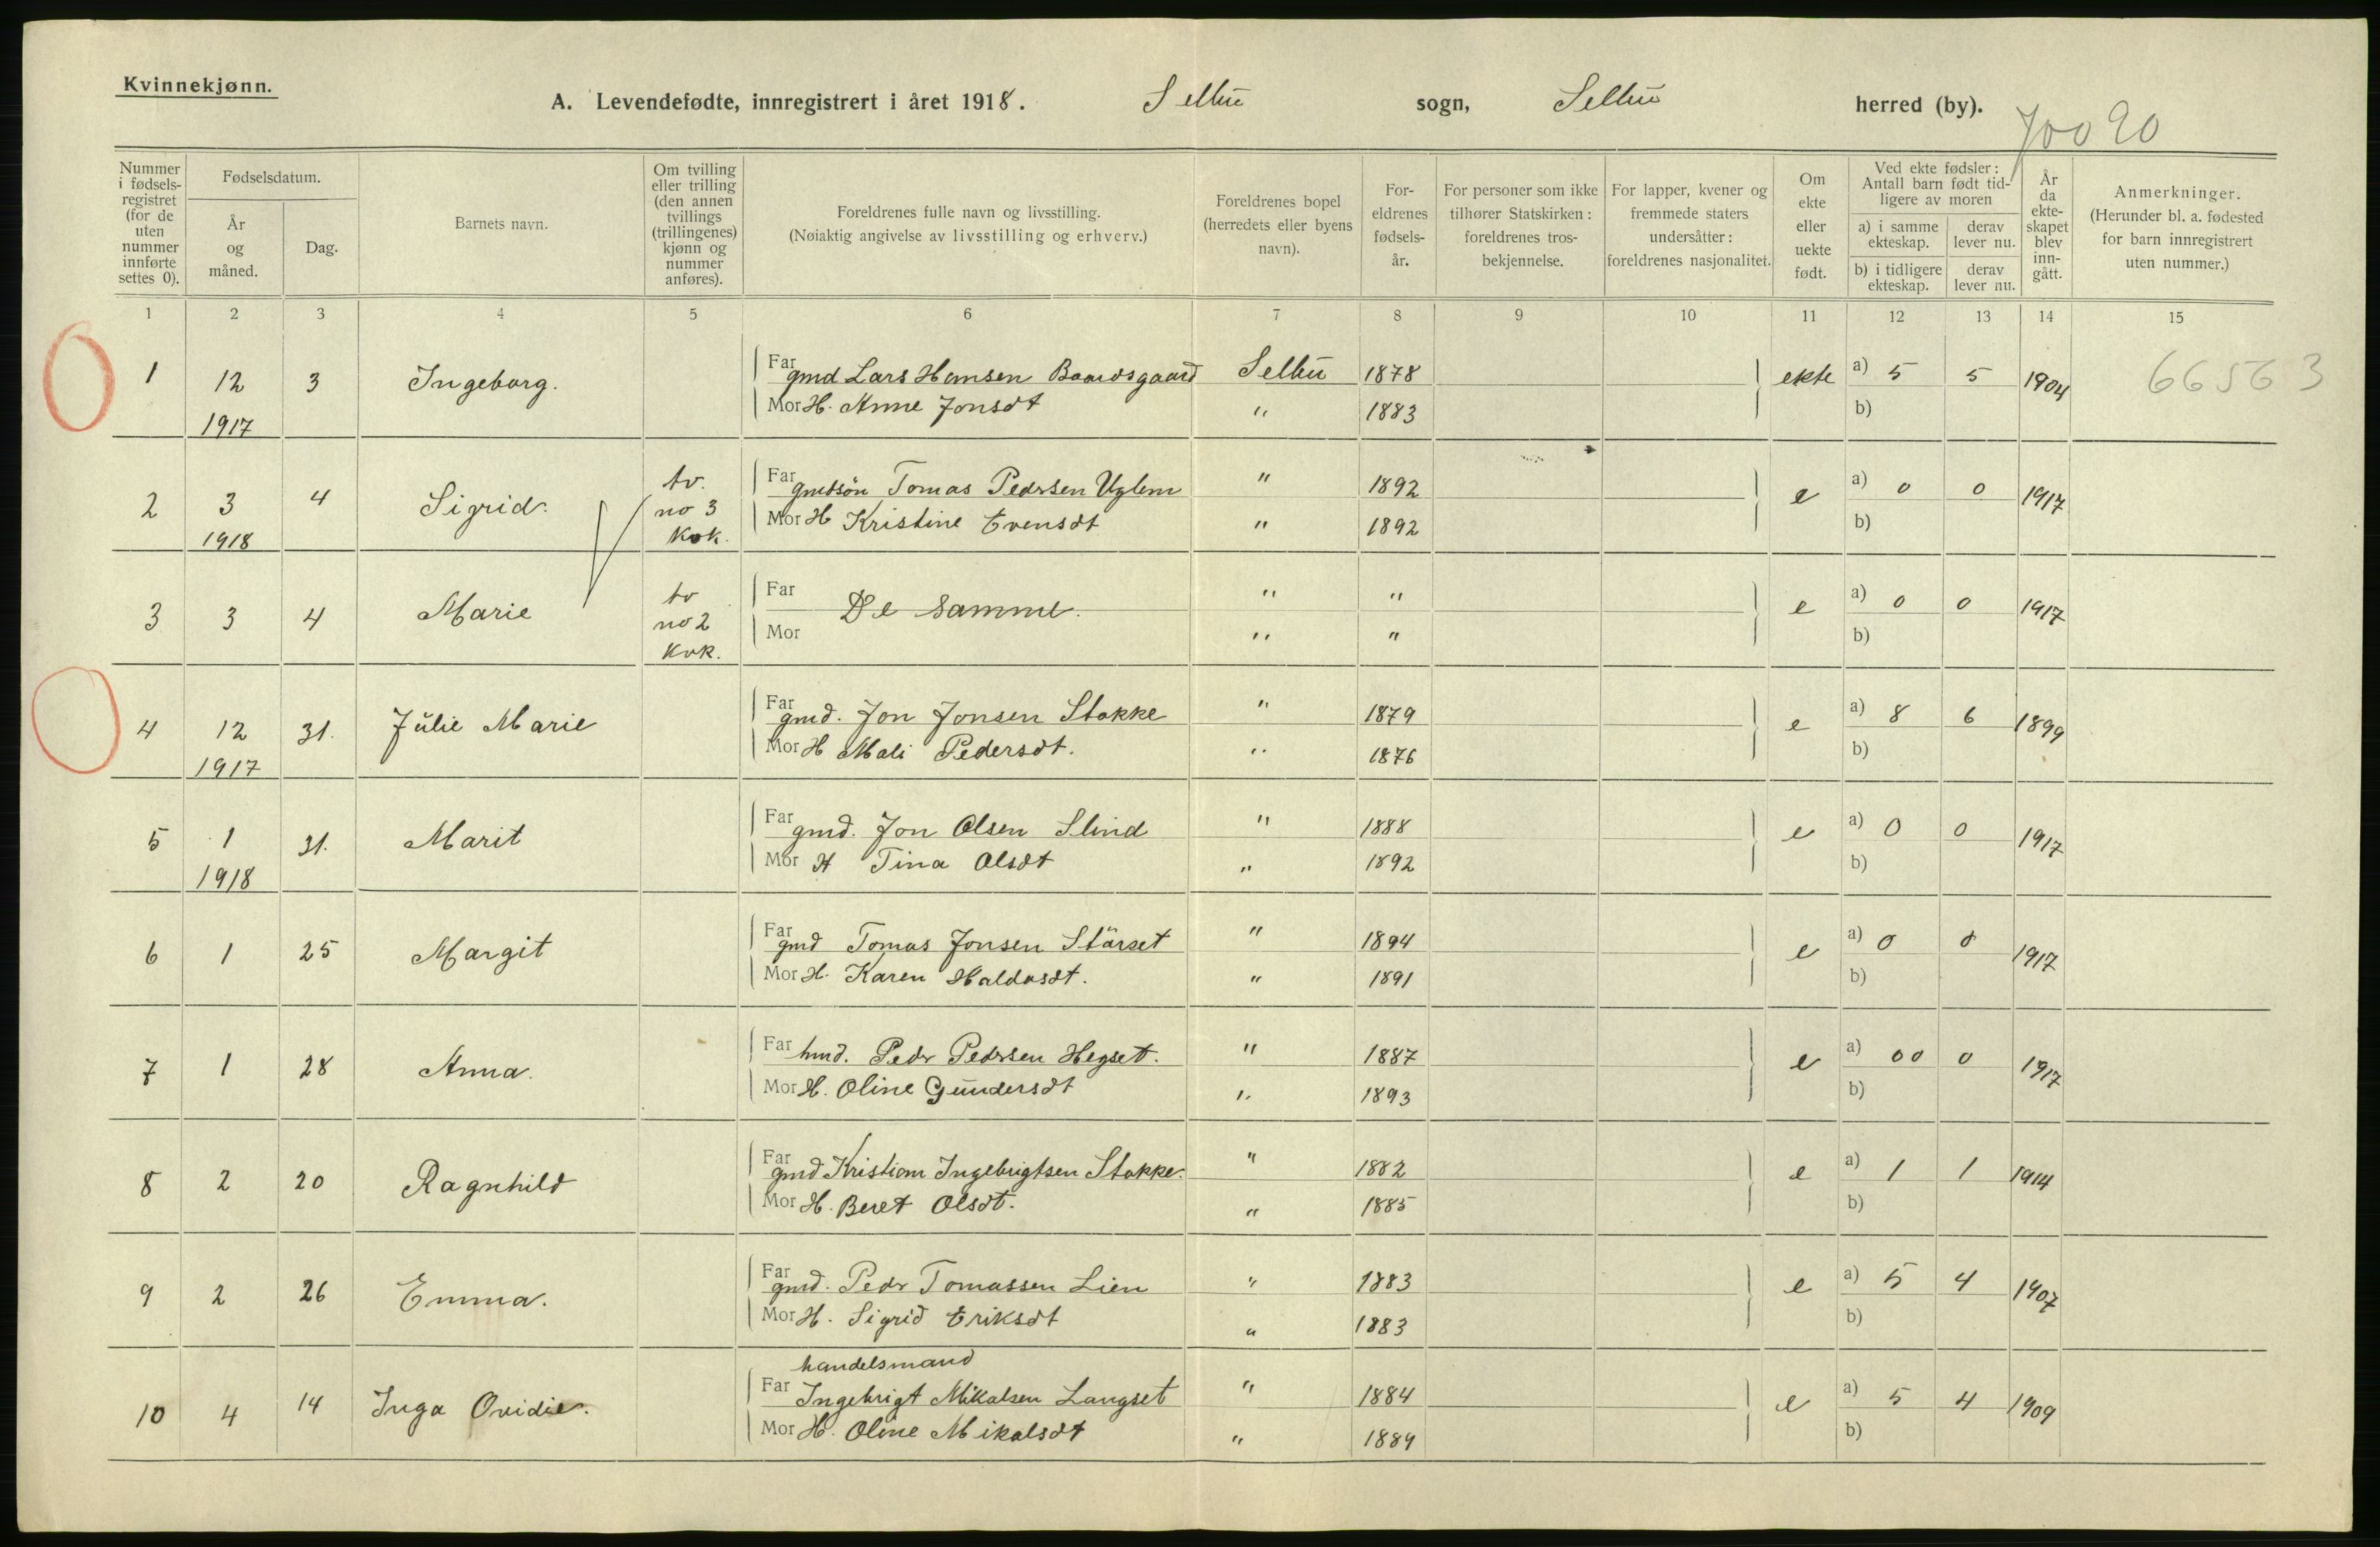 Kvinnekjønn.
A. Levendefødte, innregistrert i året 1918. Selbu sogn, Selbu herred (by).
70090
Nummer i fødselsregistret (for de uten nummer innførte settes 0).
Fødselsdatum.
År og måned.
Dag.
Barnets navn.
Om tvilling eller trilling (den annen tvillings (trillingenes) kjønn og nummer anføres).
Foreldrenes fulle navn og livsstilling.
(Nøiaktig angivelse av livsstilling og erhverv.)
Foreldrenes bopel (herredets eller byens navn).
Foreldrenes fødselsår.
For personer som ikke tilhører Statskirken: foreldrenes trosbekjennelse.
For lapper, kvener og fremmede staters undersåtter: foreldrenes nasjonalitet.
Om ekte eller uekte født.
Ved ekte fødsler: Antall barn født tidligere av moren
a) i samme ekteskap. derav lever nu.
b) i tidligere ekteskap. derav lever nu.
År da ekteskapet blev inngått.
Anmerkninger.
(Herunder bl. a. fødested for barn innregistrert uten nummer.)
1 2 3 4 5 6 7 8 9 10 11 12 13 14 15
1 12 1917 3 Ingeborg. Far gmd Lars Hansen Baardsgaard Selbu 1878 ekte a) 5 5 1904 66563
Mor H. Anne Jonsdt " 1883 b)
2 3 1918 4 Sigrid. tv. no 3 Kvk. Far gmdsøn Tomas Pedrsen Uglem " 1892 e a) 0 0 1917
Mor H Kristine Evensdt " 1892 b)
3 3 4 Marie tv no 2 Kvk. Far De samme. " " e a) 0 0 1917
Mor " " b)
4 12 1917 31. Julie Marie Far gmd. Jon Jonsen Stokke " 1879 e a) 8 6 1899
Mor H Mali Pedersdt. " 1876 b)
5 1 1918 31. Marit Far gmd. Jon Olsen Slind " 1888 e a) 0 0 1917
Mor H Tina Olsdt " 1892 b)
6 1 25 Margit Far gmd Tomas Jonsen Stärset " 1894 e a) 0 0 1917
Mor H. Karen Haldosdt. " 1891 b)
7 1 28 Anna. Far hmd. Pedr Pedrsen Hegset. " 1887 e a) 00 0 1917
Mor H. Oline Gundersdt " 1893 b)
8 2 20 Ragnhild Far gmd Kristian Ingebrigtsen Stokke. " 1882 e a) 1 1 1914
Mor H. Beret Olsdt. " 1885 b)
9 2 26 Emma. Far gmd. Pedr Tomassen Lien " 1883 e a) 5 4 1907
Mor H. Sigrid Eriksdt " 1883 b)
handelsmand
10 4 14 Inga Ovidie. Far Ingebrigt Mikalsen Langset " 1884 e a) 5 4 1909
Mor H. Oline Mikalsdt " 1889 b)